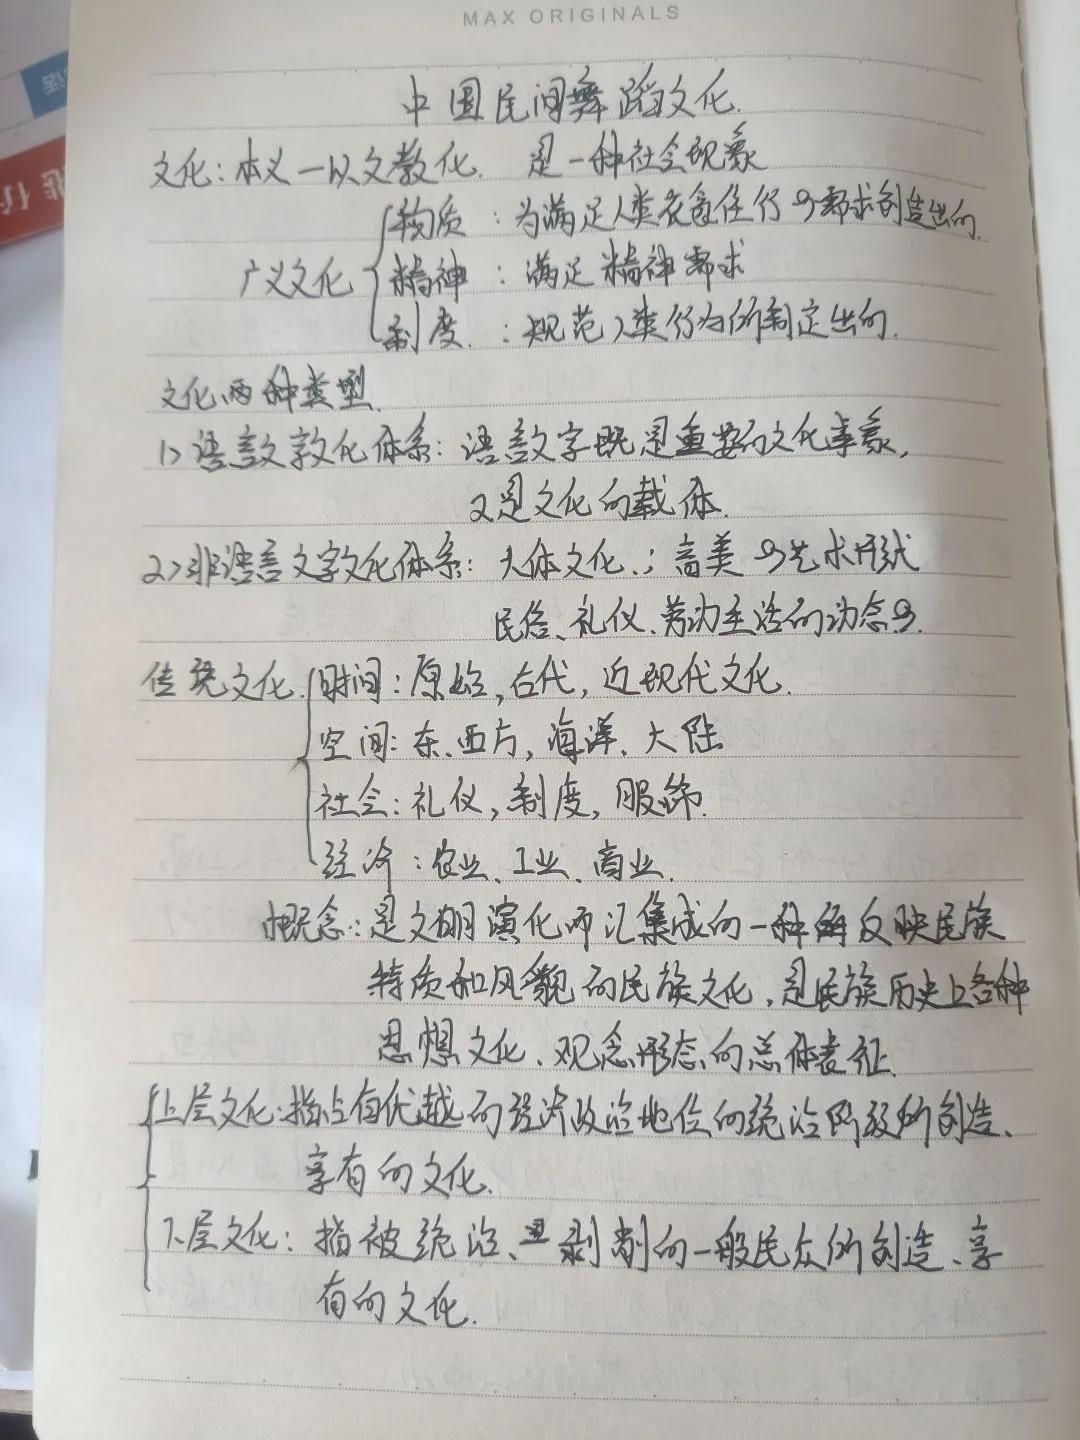 MAX ORIGINALS
中国民间舞蹈文化.
文化:本义一以文教化. 是一种社会现象
物质:为满足人类衣食住行的需求创造出的.
广义文化 精神:满足精神需求
制度.:规范人类行为所制定出的.
文化两种类型.
1>语言文字文化体系:语言文字既是重要的文化事象,
又是文化的载体.
2>非语言文字文化体系:大体文化.;高美的艺术形式
民俗、礼仪、劳动生活的动态的.
传统文化.时间:原始,古代,近现代文化.
空间:东、西方,海洋、大陆
社会:礼仪,制度,服饰.
经济:农业、工业、商业.
概念:是文明演化而汇集成的一种反映民族
特质和风貌的民族文化,是民族历史上各种
思想文化、观念形态的总体表征.
上层文化:指占有优越的经济政治地位的统治阶级所创造、
享有的文化.
下层文化:指被统治、剥削的一般民众所创造、享
有的文化.